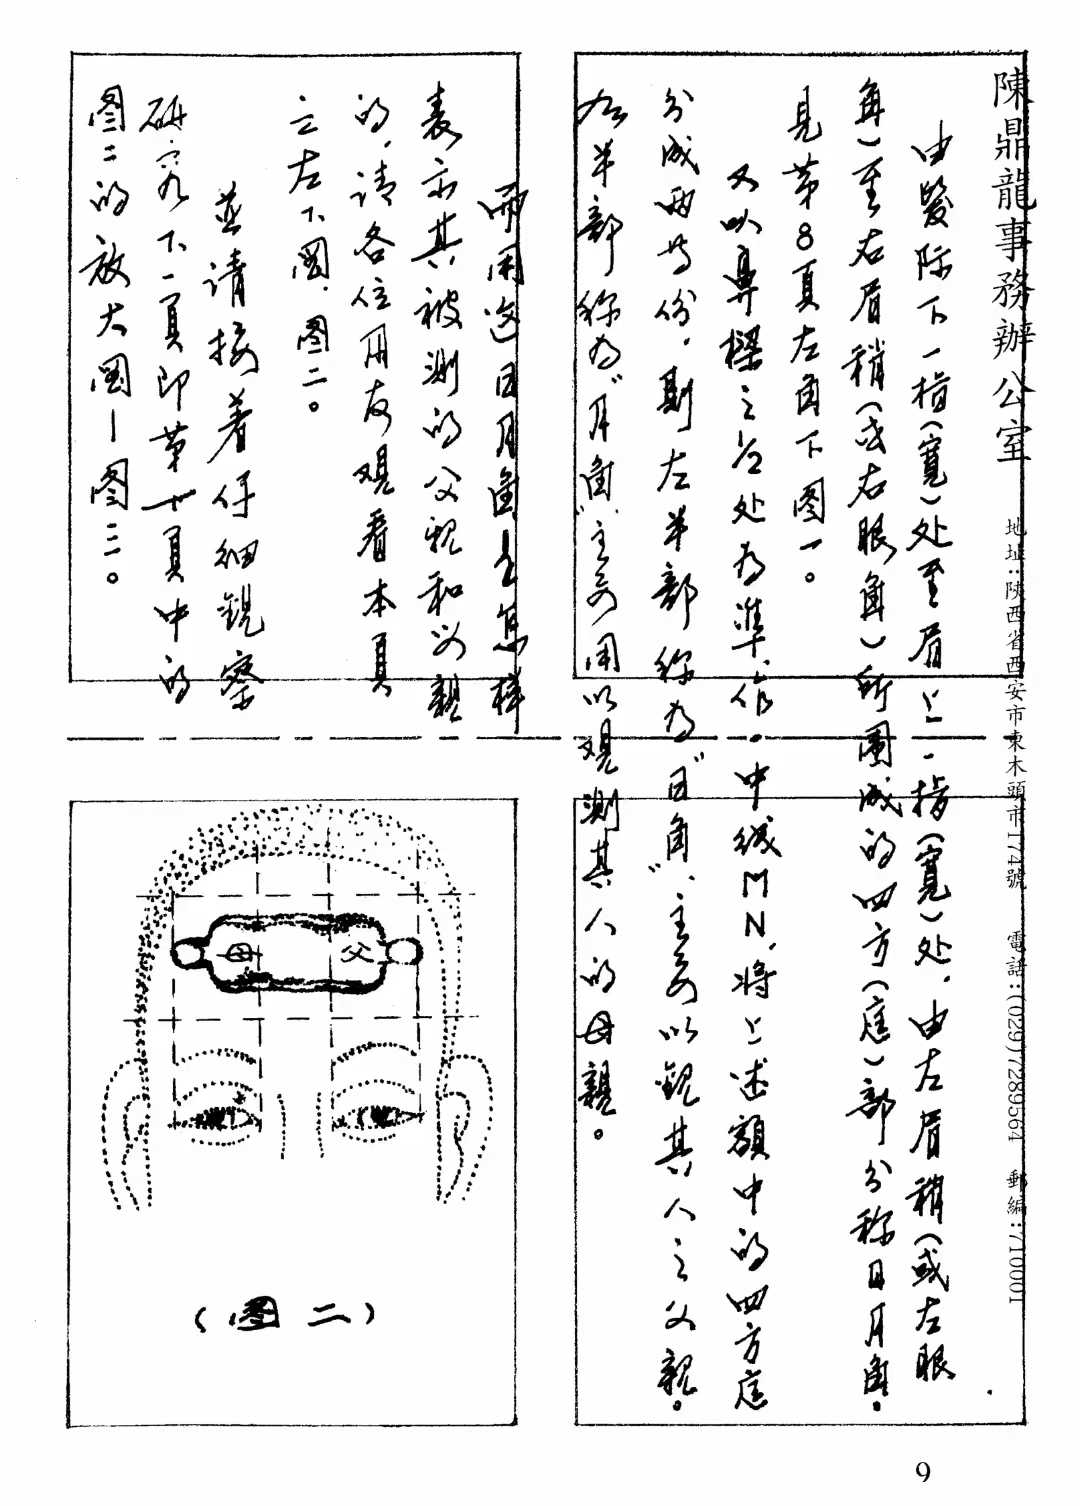 陳鼎龍事務辦公室 地址:陝西省西安市東木頭市174號 電話:(029)7289564 郵編:710001
由髮际下一指(寬)处至眉上一指(寬)处，由左眉稍(或左眼
角)至右眉稍(或右眼角)所围成的四方(庭)部分称日月角。
見苐8頁左角下图一。
又以鼻樑之沿处为準，作。中线MN，将上述额中的四方庭
分成两等份，则左半部称为"日角"，主要以観其人之父親。
右半部称为"月角"，主要用以观测其人的母親。
而用这日月角是怎样
表示其被测的父親和母親
的，请各位朋友观看本頁
之左下图，图二。
並请接着仔细観察
研究下一頁即苐十頁中的
图二的放大图—图三。
母 父
(图二)
9